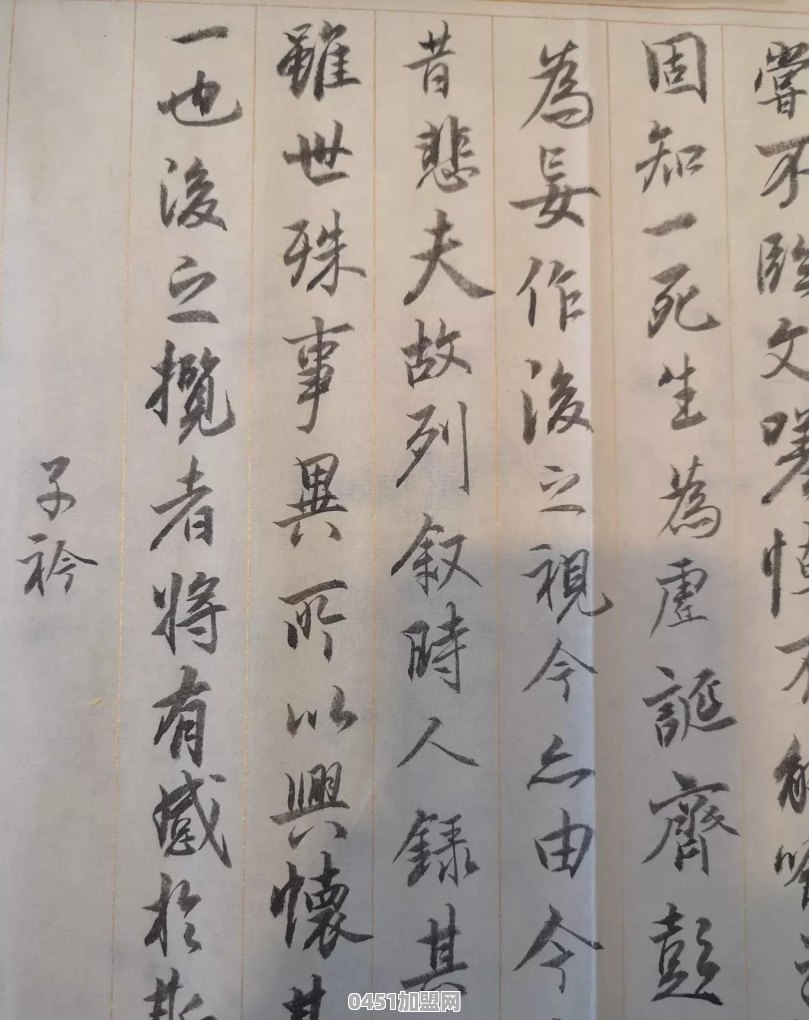 嘗不臨文嗟悼不能喻
固知一死生為虛誕齊彭
為妄作後之視今亦由今
昔悲夫故列叙時人錄其
雖世殊事異所以興懷其
一也後之攬者將有感於斯
子衿
0451加盟网